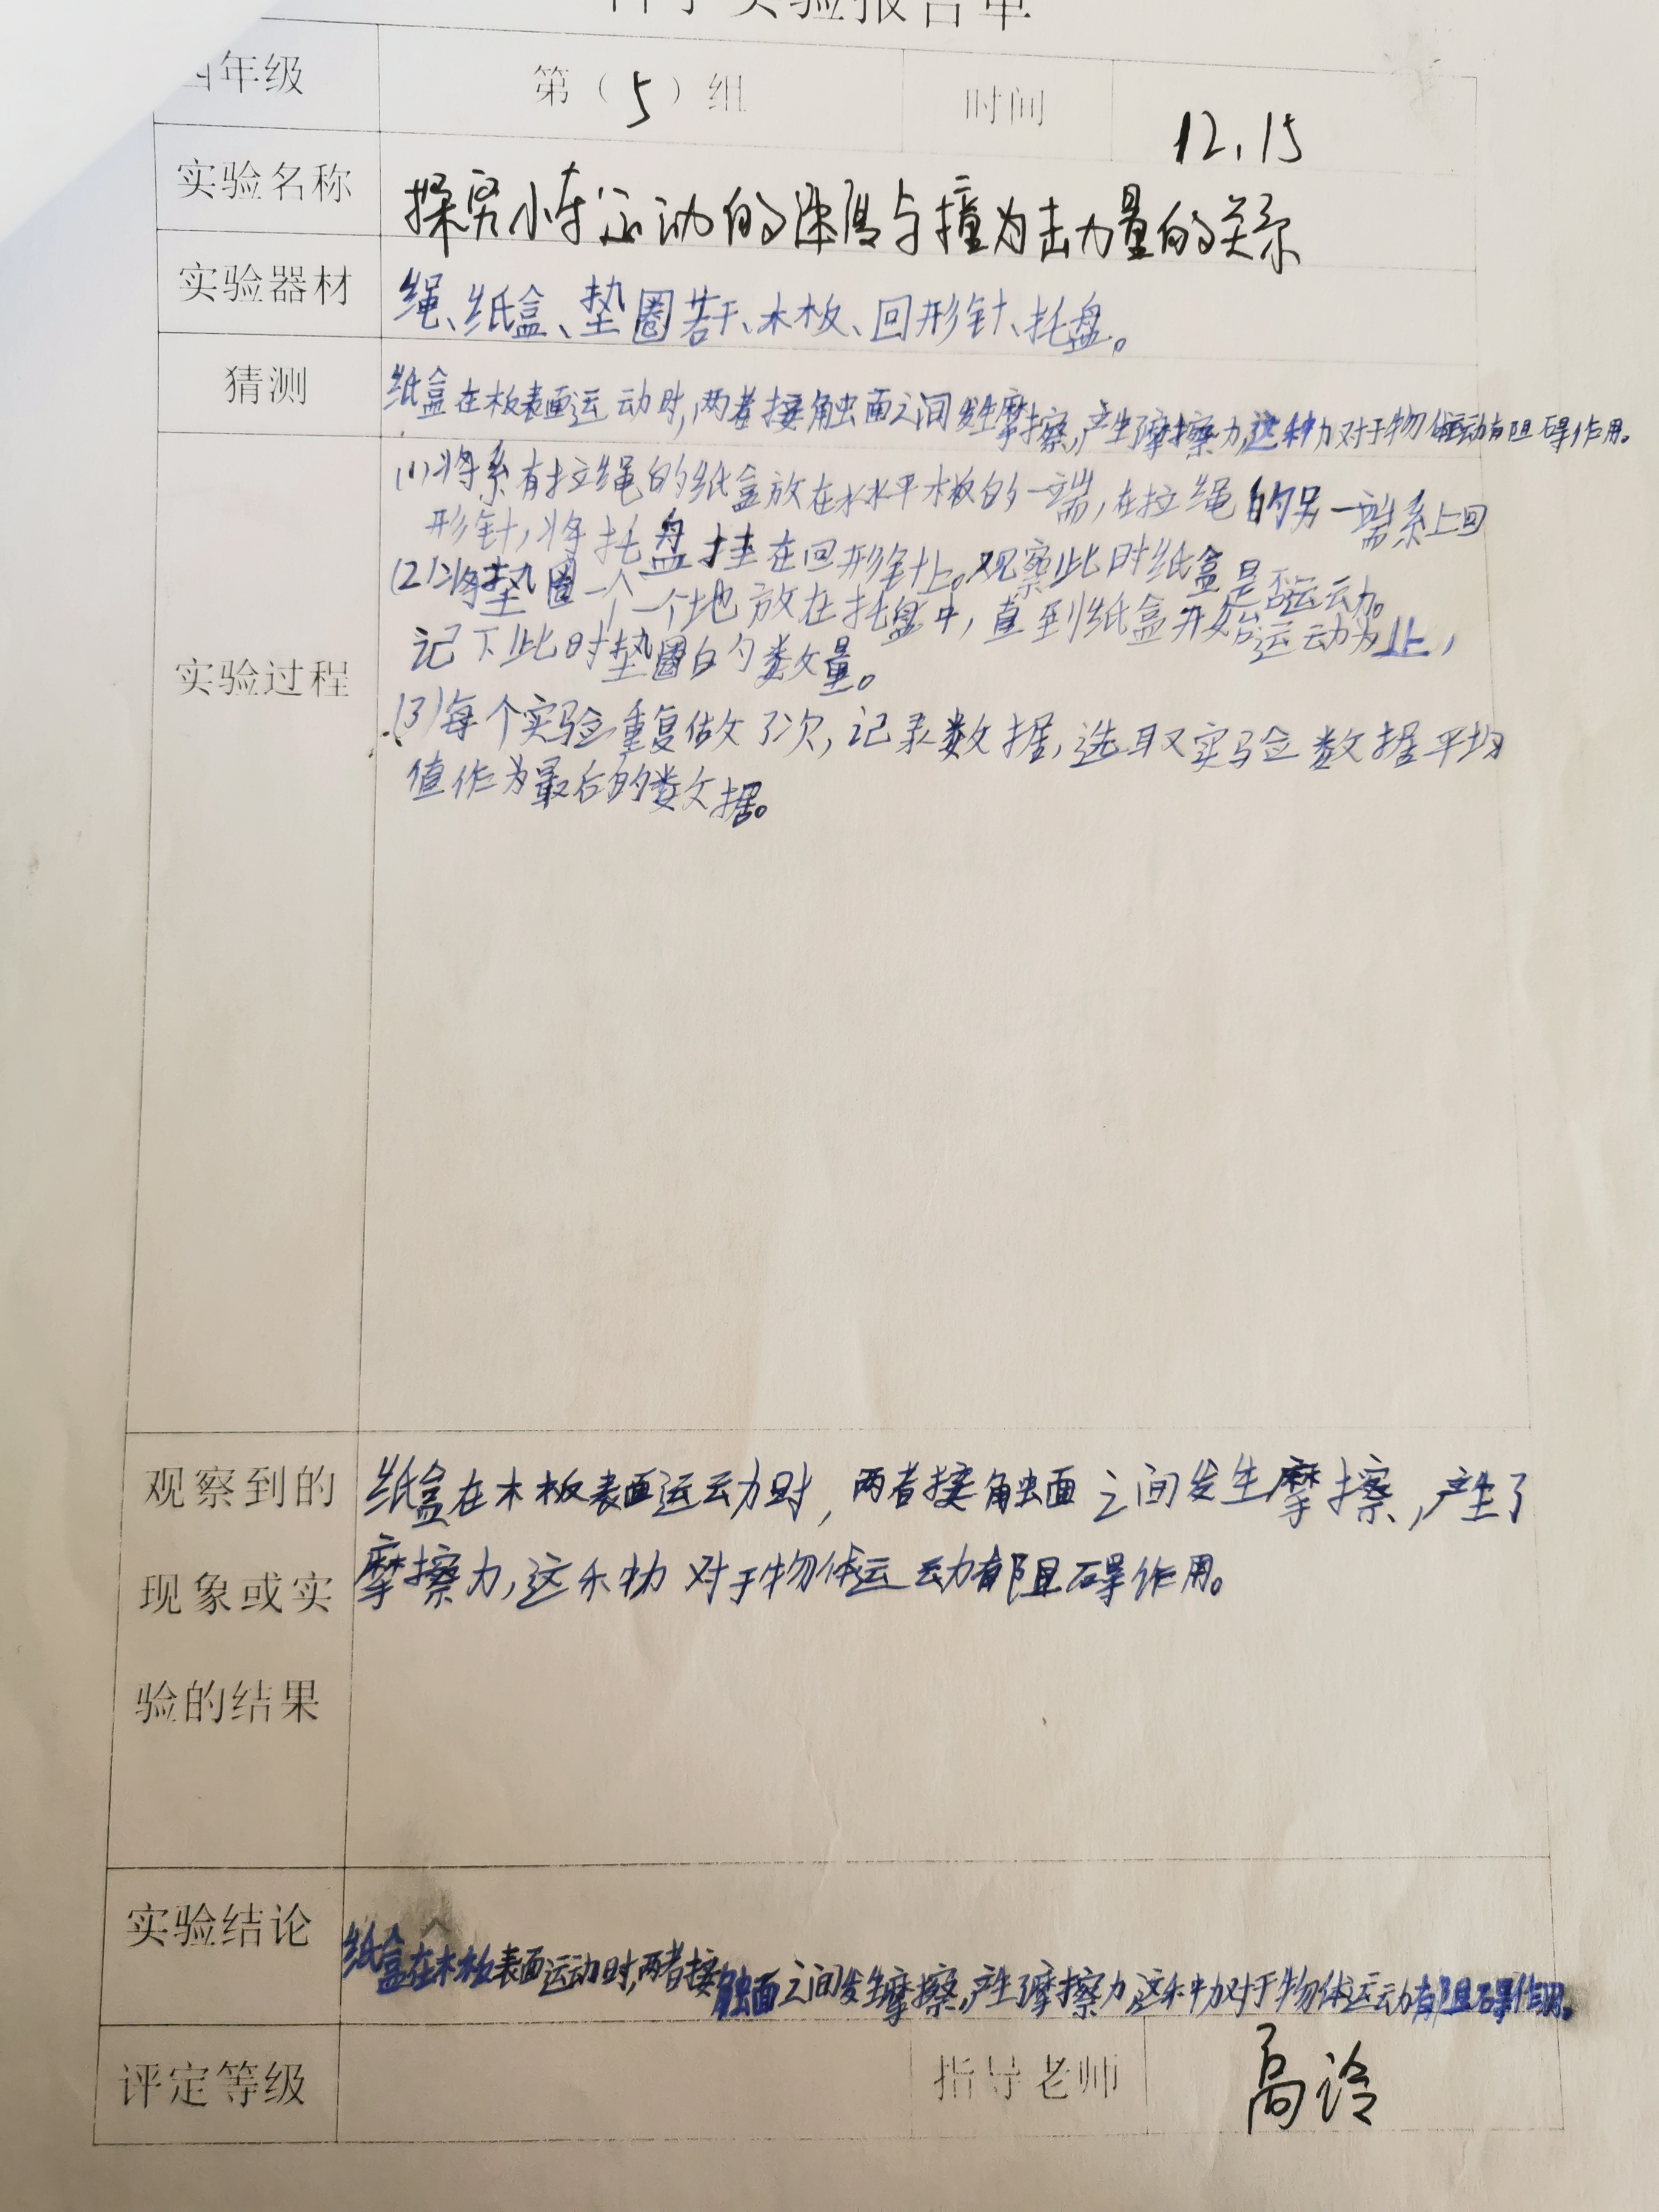 科学实验报告单
四年级 第（5）组 时间 12.15
实验名称 探究小车运动的速度与撞击力量的关系
实验器材 绳、纸盒、垫圈若干、木板、回形针、托盘。
猜测 纸盒在木板表面运动时,两者接触面之间发生摩擦,产生了摩擦力,这种力对于物体运动有阻碍作用。
实验过程
(1)将系有拉绳的纸盒放在水平木板的一端,在拉绳的另一端系上回
形针,将托盘挂在回形针上。观察此时纸盒是否运动。
(2)将垫圈一个一个地放在托盘中,直到纸盒开始运动为止,
记下此时垫圈的数量。
(3)每个实验重复做了次,记录数据,选取实验数据平均
值作为最后的数据。
观察到的
现象或实
验的结果
纸盒在木板表面运动时,两者接触面之间发生摩擦,产生了
摩擦力,这种力对于物体运动有阻碍作用。
实验结论 纸盒在木板表面运动时,两者接触面之间发生摩擦,产生了摩擦力,这种力对于物体运动有阻碍作用。
评定等级 指导老师 高